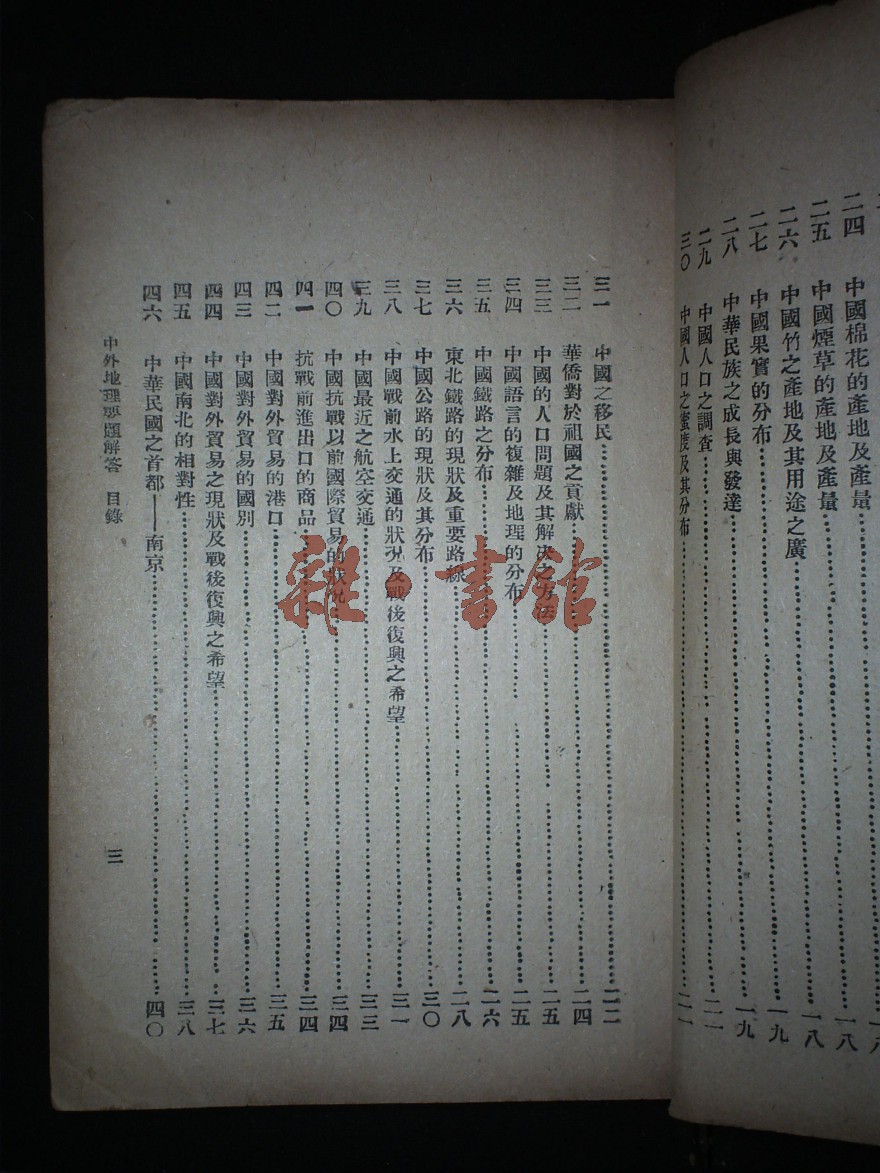 二四 中國棉花的產地及產量 一八
二五 中國煙草的產地及產量 一八
二六 中國竹之產地及其用途之廣 一八
二七 中國果實的分布 一九
二八 中華民族之成長與發達 一九
二九 中國人口之調查 二一
三〇 中國人口之蜜度及其分布 二一
三一 中國之移民 二二
三二 華僑對於祖國之貢獻 二四
三三 中國的人口問題及其解決之方法 二五
三四 中國語言的複雜及地理的分布 二五
三五 中國鐵路之分布 二六
三六 東北鐵路的現狀及重要路線 二八
三七 中國公路的現狀及其分布 三〇
三八 中國戰前水上交通的狀況及戰後復興之希望 三一
三九 中國最近之航空交通 三三
四〇 中國抗戰以前國際貿易的狀況 三四
四一 抗戰前進出口的商品 三四
四二 中國對外貿易的港口 三五
四三 中國對外貿易的國別 三六
四四 中國對外貿易之現狀及戰後復興之希望 三七
四五 中國南北的相對性 三八
四六 中華民國之首都——南京 四〇
中外地理要題解答 目錄 三
雜·書館